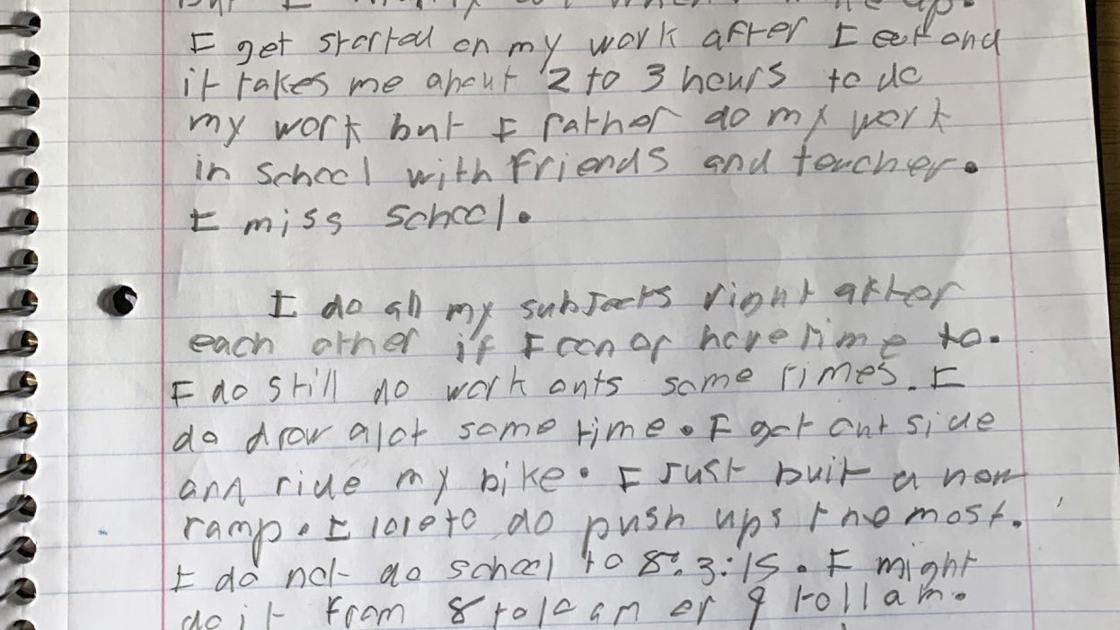 but I when up.
I get started on my work after I eat and
it takes me about 2 to 3 hours to do
my work but I rather do my work
in school with friends and teacher.
I miss school.
I do all my subjects right after
each other if I can or have time to.
I do still do work outs some times. I
do draw alot some time. I get out side
and ride my bike. I Just buit a new
ramp. I love to do push ups the most.
I do not do school to 8: 3:15. I might
do it from 8 to 10 am or 9 to 11 am.